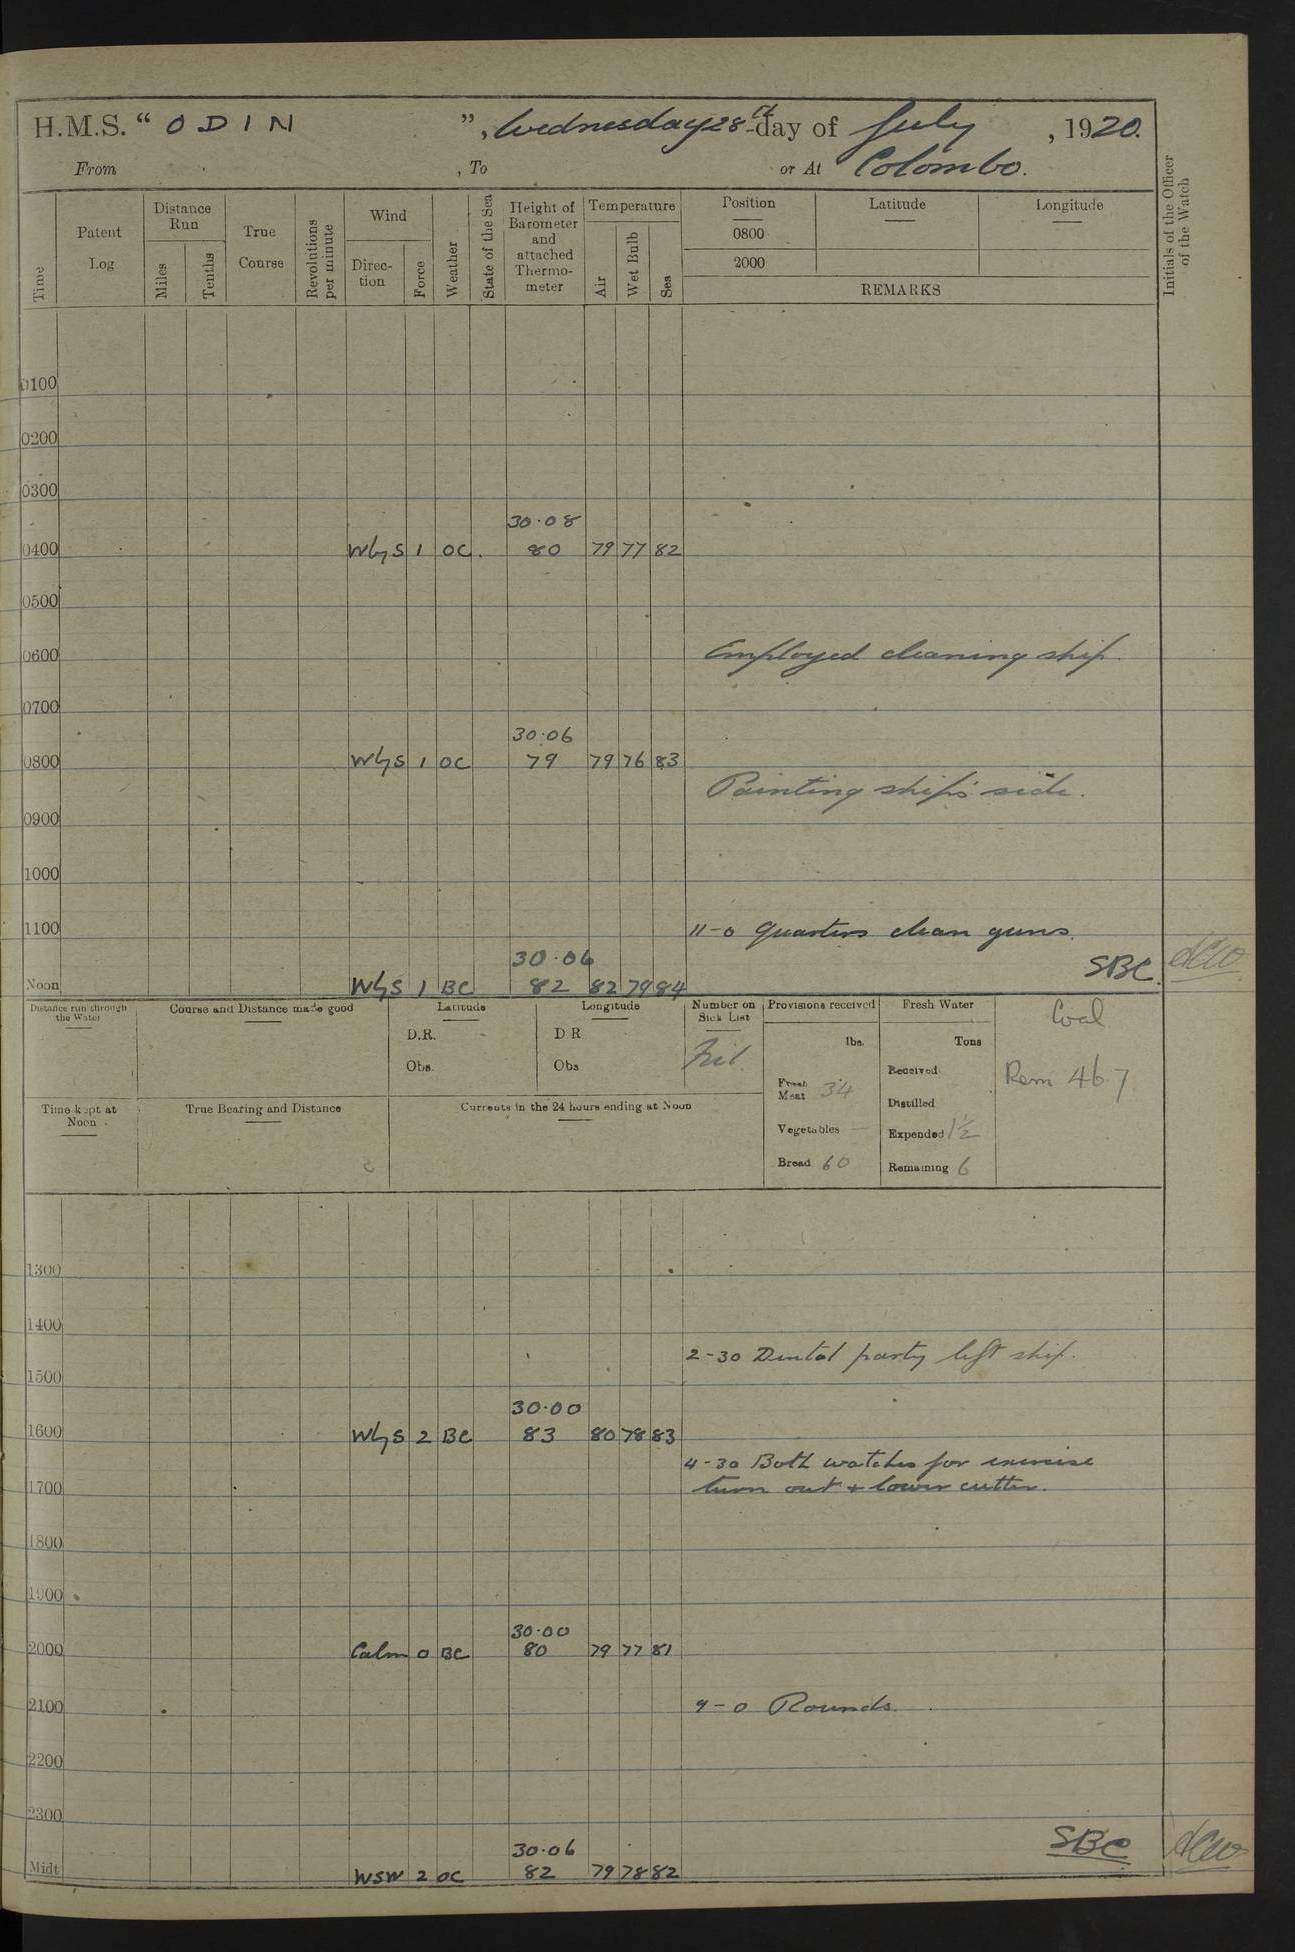 H.M.S. “ ODIN ”, Wednesday 28th day of July , 1920.
From , To or At Colombo.
Time
Patent Log
Distance Run
Miles
Tenths
True Course
Revolutions per minute
Wind
Direction
Force
Weather
State of the Sea
Height of Barometer and attached Thermometer
Temperature
Air
Wet Bulb
Sea
Position
0800
2000
Latitude
Longitude
REMARKS
Initials of the Officer of the Watch
0100
0200
0300
30.08
0400 WbyS 1 OC. 80 79 77 82
0500
0600 Employed cleaning ship.
0700
30.06
0800 WbyS 1 OC 79 79 76 83
Painting ship's side.
0900
1000
1100 11-0 Quarters clean guns.
30.06 SBC.
Noon WbyS 1 BC 82 82 79 84
Distance run through the Water
Course and Distance made good
Latitude
D.R.
Obs.
Longitude
D R
Obs
Number on Sick List
Nil
Provisions received
lbs.
Fresh Meat 34
Vegetables —
Bread 60
Fresh Water
Tons
Received
Distilled
Expended 1½
Remaining 6
Coal
Rem 467
Time kept at Noon
True Bearing and Distance
Currents in the 24 hours ending at Noon
1300
1400
2-30 Dental party left ship.
1500
30.00
1600 WbyS 2 BC 83 80 78 83
4-30 Both watches for exercise
1700 turn out + lower cutter.
1800
1900
30.00
2000 Calm 0 BC 80 79 77 81
2100 9-0 Rounds.
2200
2300
30.06 SBC
Midt WSW 2 OC 82 79 78 82